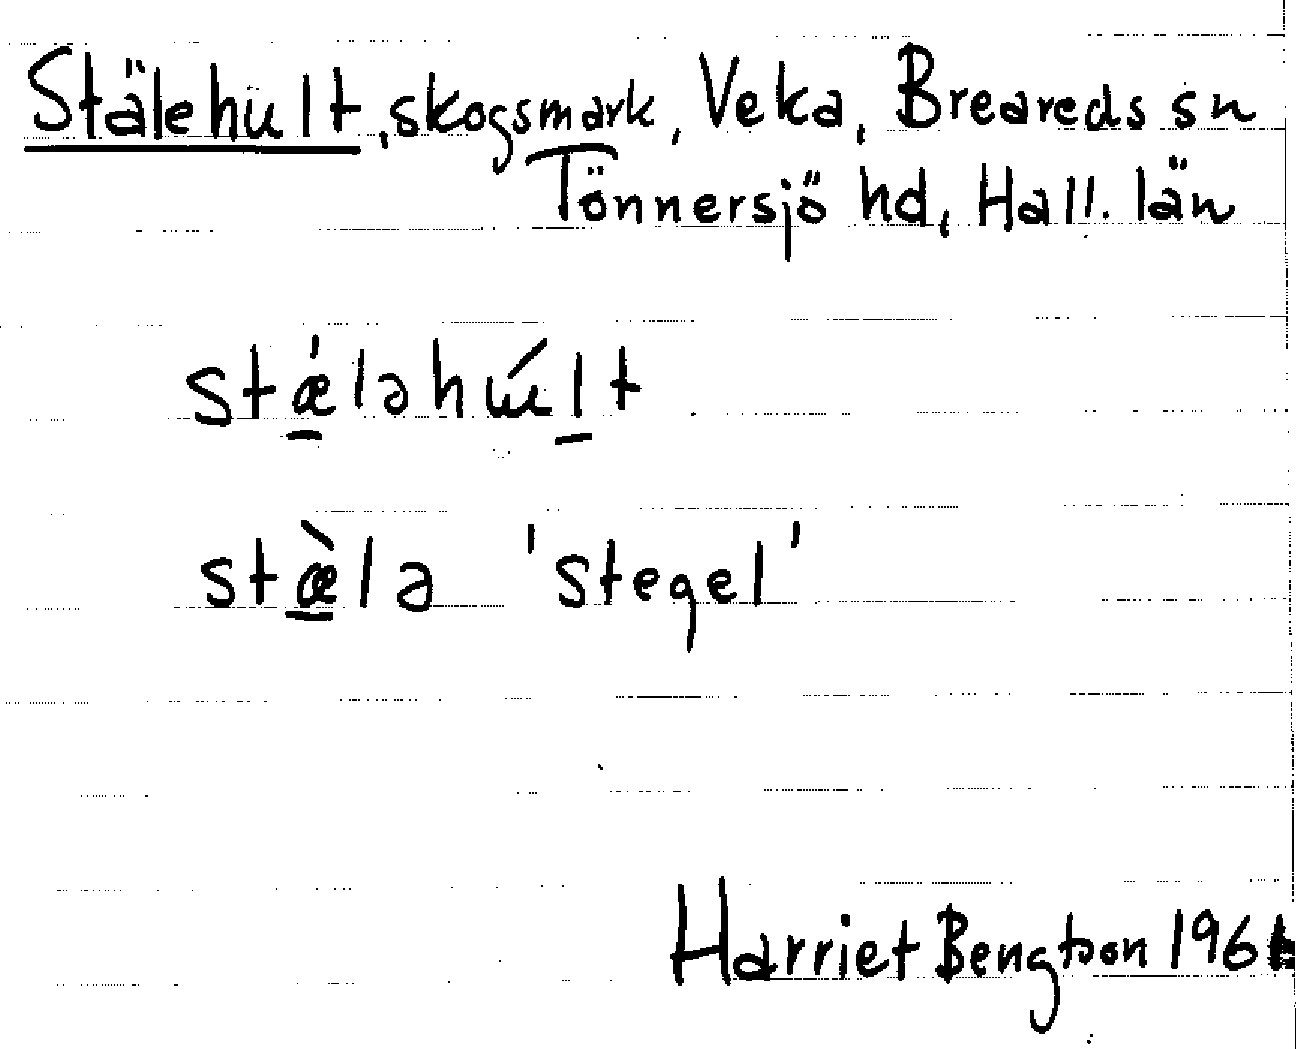 Stälehult, skogsmark, Veka, Breareds sn
Tönnersjö hd, Hall. län
stǽ̱ləhúḻt
stæ̱̀lə 'stegel'
Harriet Bengtson